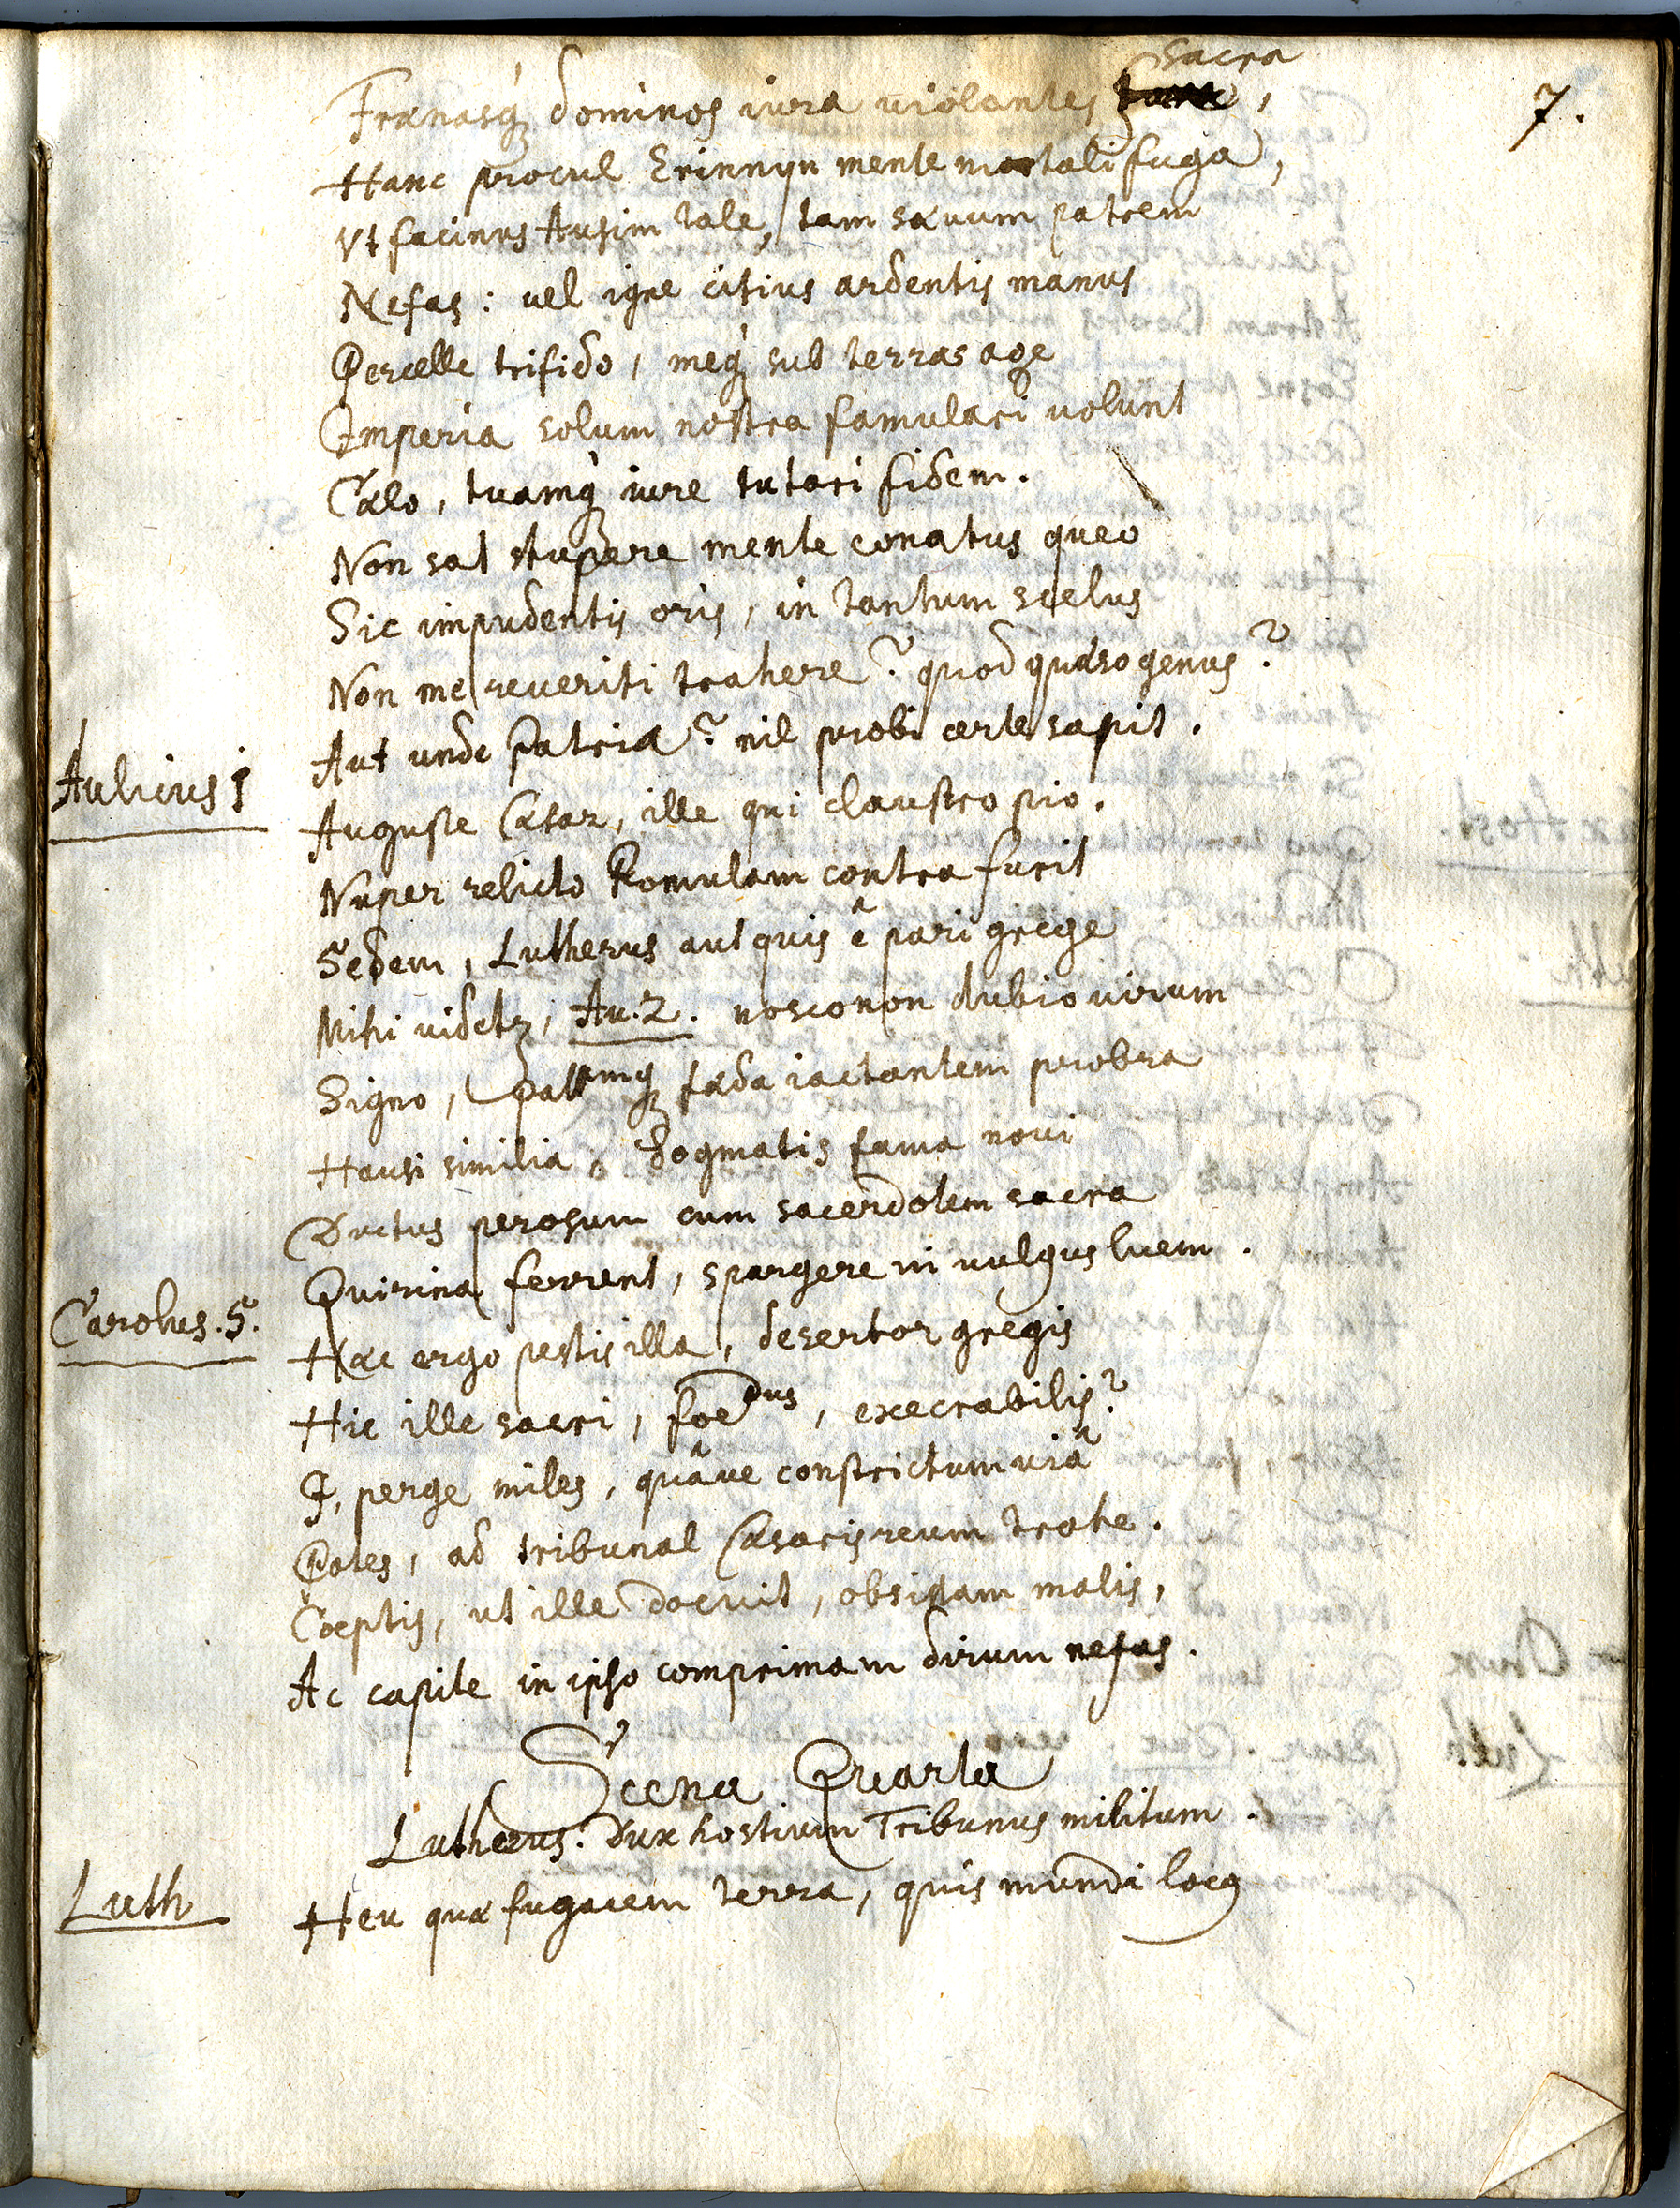 7.
sacra
Frænasq; dominos iura violantes
Hanc procul Erinnyn mente mortali fuga,
Vt facinus Ausim tale, tam sævum patrem
Nefas: vel igne citius ardentis manus
Percelle trifido, meq; sub terras age
Imperia solum nostra famulari volunt
Cælo, tuamq; iure tutari fidem.
Non sat stupere mente conatus queo
Sic impudentis oris, in tantum scelus
Non me reueriti trahere? quod quæso genus?
Aut unde Patria? nil probi certe sapit.
Aulicus 1
Auguste Cæsar, ille qui claustro pio.
Nuper relicto Romulam contra furit
Sedem, Lutherus aut quis è pari grege
Mihi videtʒ, Au. 2. nosco non dubio virum
Signo, Palamq; fæda iactantem probra
Hausi similia, dogmatis fama noui
Ductus perosum cum sacerdotem sacra
Quirina ferrent, spargere in vulgus luem.
Carolus. 5.
Hæc ergo pestis illa, desertor gregis
Hic ille sacri, foedus, execrabilis?
I, perge miles, quâue constrictum viâ
Potes, ad tribunal Cæsaris reum trahe.
Cœptis, ut ille docuit, obsistam malis,
Ac capite in ipso comprimam dirum nefas.
Scena Quarta
Lutherus. Dux hostium Tribunus militum.
Luth
Heu quæ fugacem terra, quis mundi locq